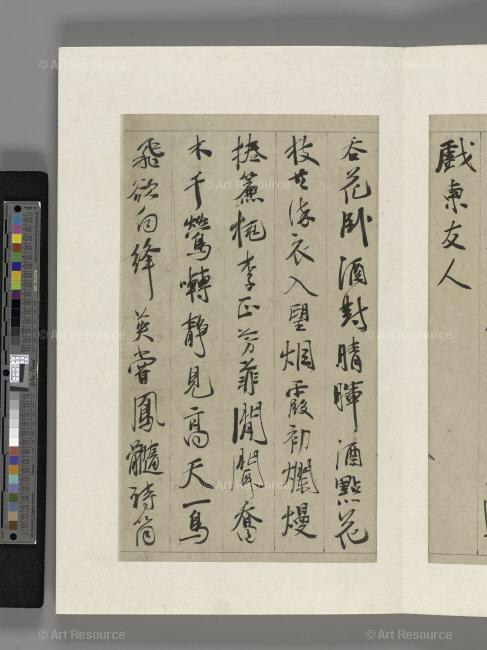 戲柬友人
吞花臥酒對晴暉酒點花
枝衣入望烟霞初爛熳
捲簾桃李正芳菲閒聞喬
木千鶯囀靜見高天一鳥
飛欲向絳英嘗鳳髓詩筒
© Art Resource
© Art Resource
© Art Resource
© Art Resource
© Art Resource
© Art Resource